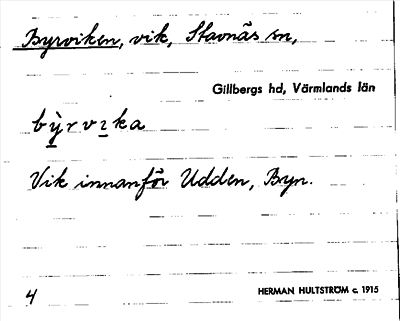 Byrviken, vik, Stavnäs sn,
Gillbergs hd, Värmlands län
bỳrvɩka
Vik innanför Udden, Byn.
4
HERMAN HULTSTRÖM c. 1915